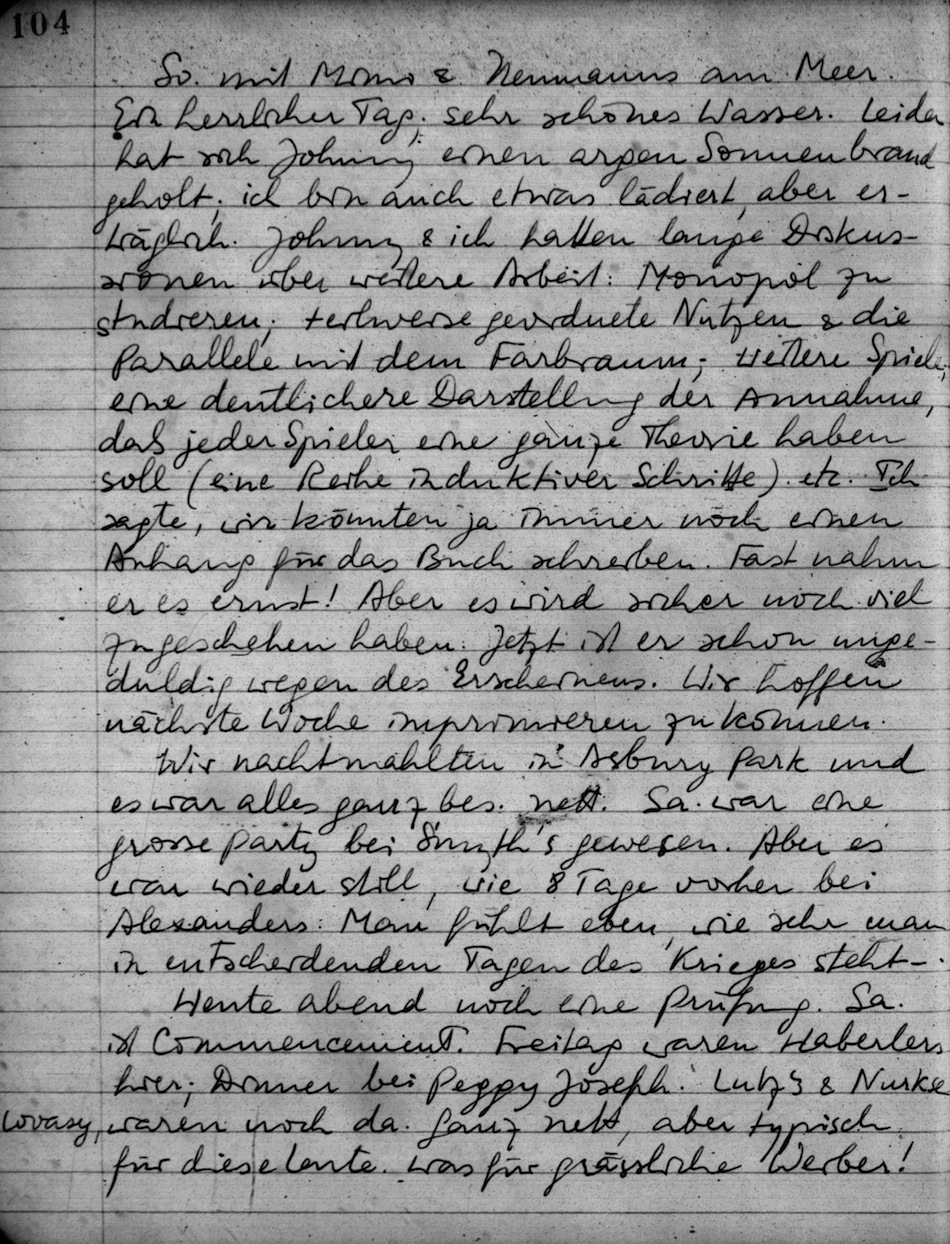 104
So. mit Momo & Neumanns am Meer.
Ein herrlicher Tag; sehr schönes Wasser. Leider
hat sich Johnny einen argen Sonnenbrand
geholt; ich bin auch etwas lädiert, aber er-
träglich. Johnny & ich hatten lange Diskus-
sionen über weitere Arbeit: Monopol zu
studieren; teilweise geordnete Nutzen & die
Parallele mit dem Farbraum; weitere Spiele;
eine deutlichere Darstellung der Annahme,
daß jeder Spieler eine ganze Theorie haben
soll (eine Reihe induktiver Schritte). etc. Ich
sagte, wir könnten ja immer noch einen
Anhang für das Buch schreiben. Fast nahm
er es ernst! Aber es wird sicher noch viel
zu geschehen haben. Jetzt ist er schon unge-
duldig wegen des Erscheinens. Wir hoffen
nächste Woche imprimieren zu können.
Wir nachtmahlten in Asbury Park und
es war alles ganz bes. nett. Sa. war eine
grosse Party bei Smyth's gewesen. Aber es
war wieder still, wie 8 Tage vorher bei
Alexanders. Man fühlt eben, wie sehr man
in entscheidenden Tagen des Krieges steht –.
Heute abend noch eine Prüfung. Sa.
ist Commencement. Freitag waren Haberlers
hier; Dinner bei Peggy Joseph. Lutz's & Nurkse
Lovasy, waren noch da. Ganz nett, aber typisch
für diese Leute. Was für grässliche Weiber!